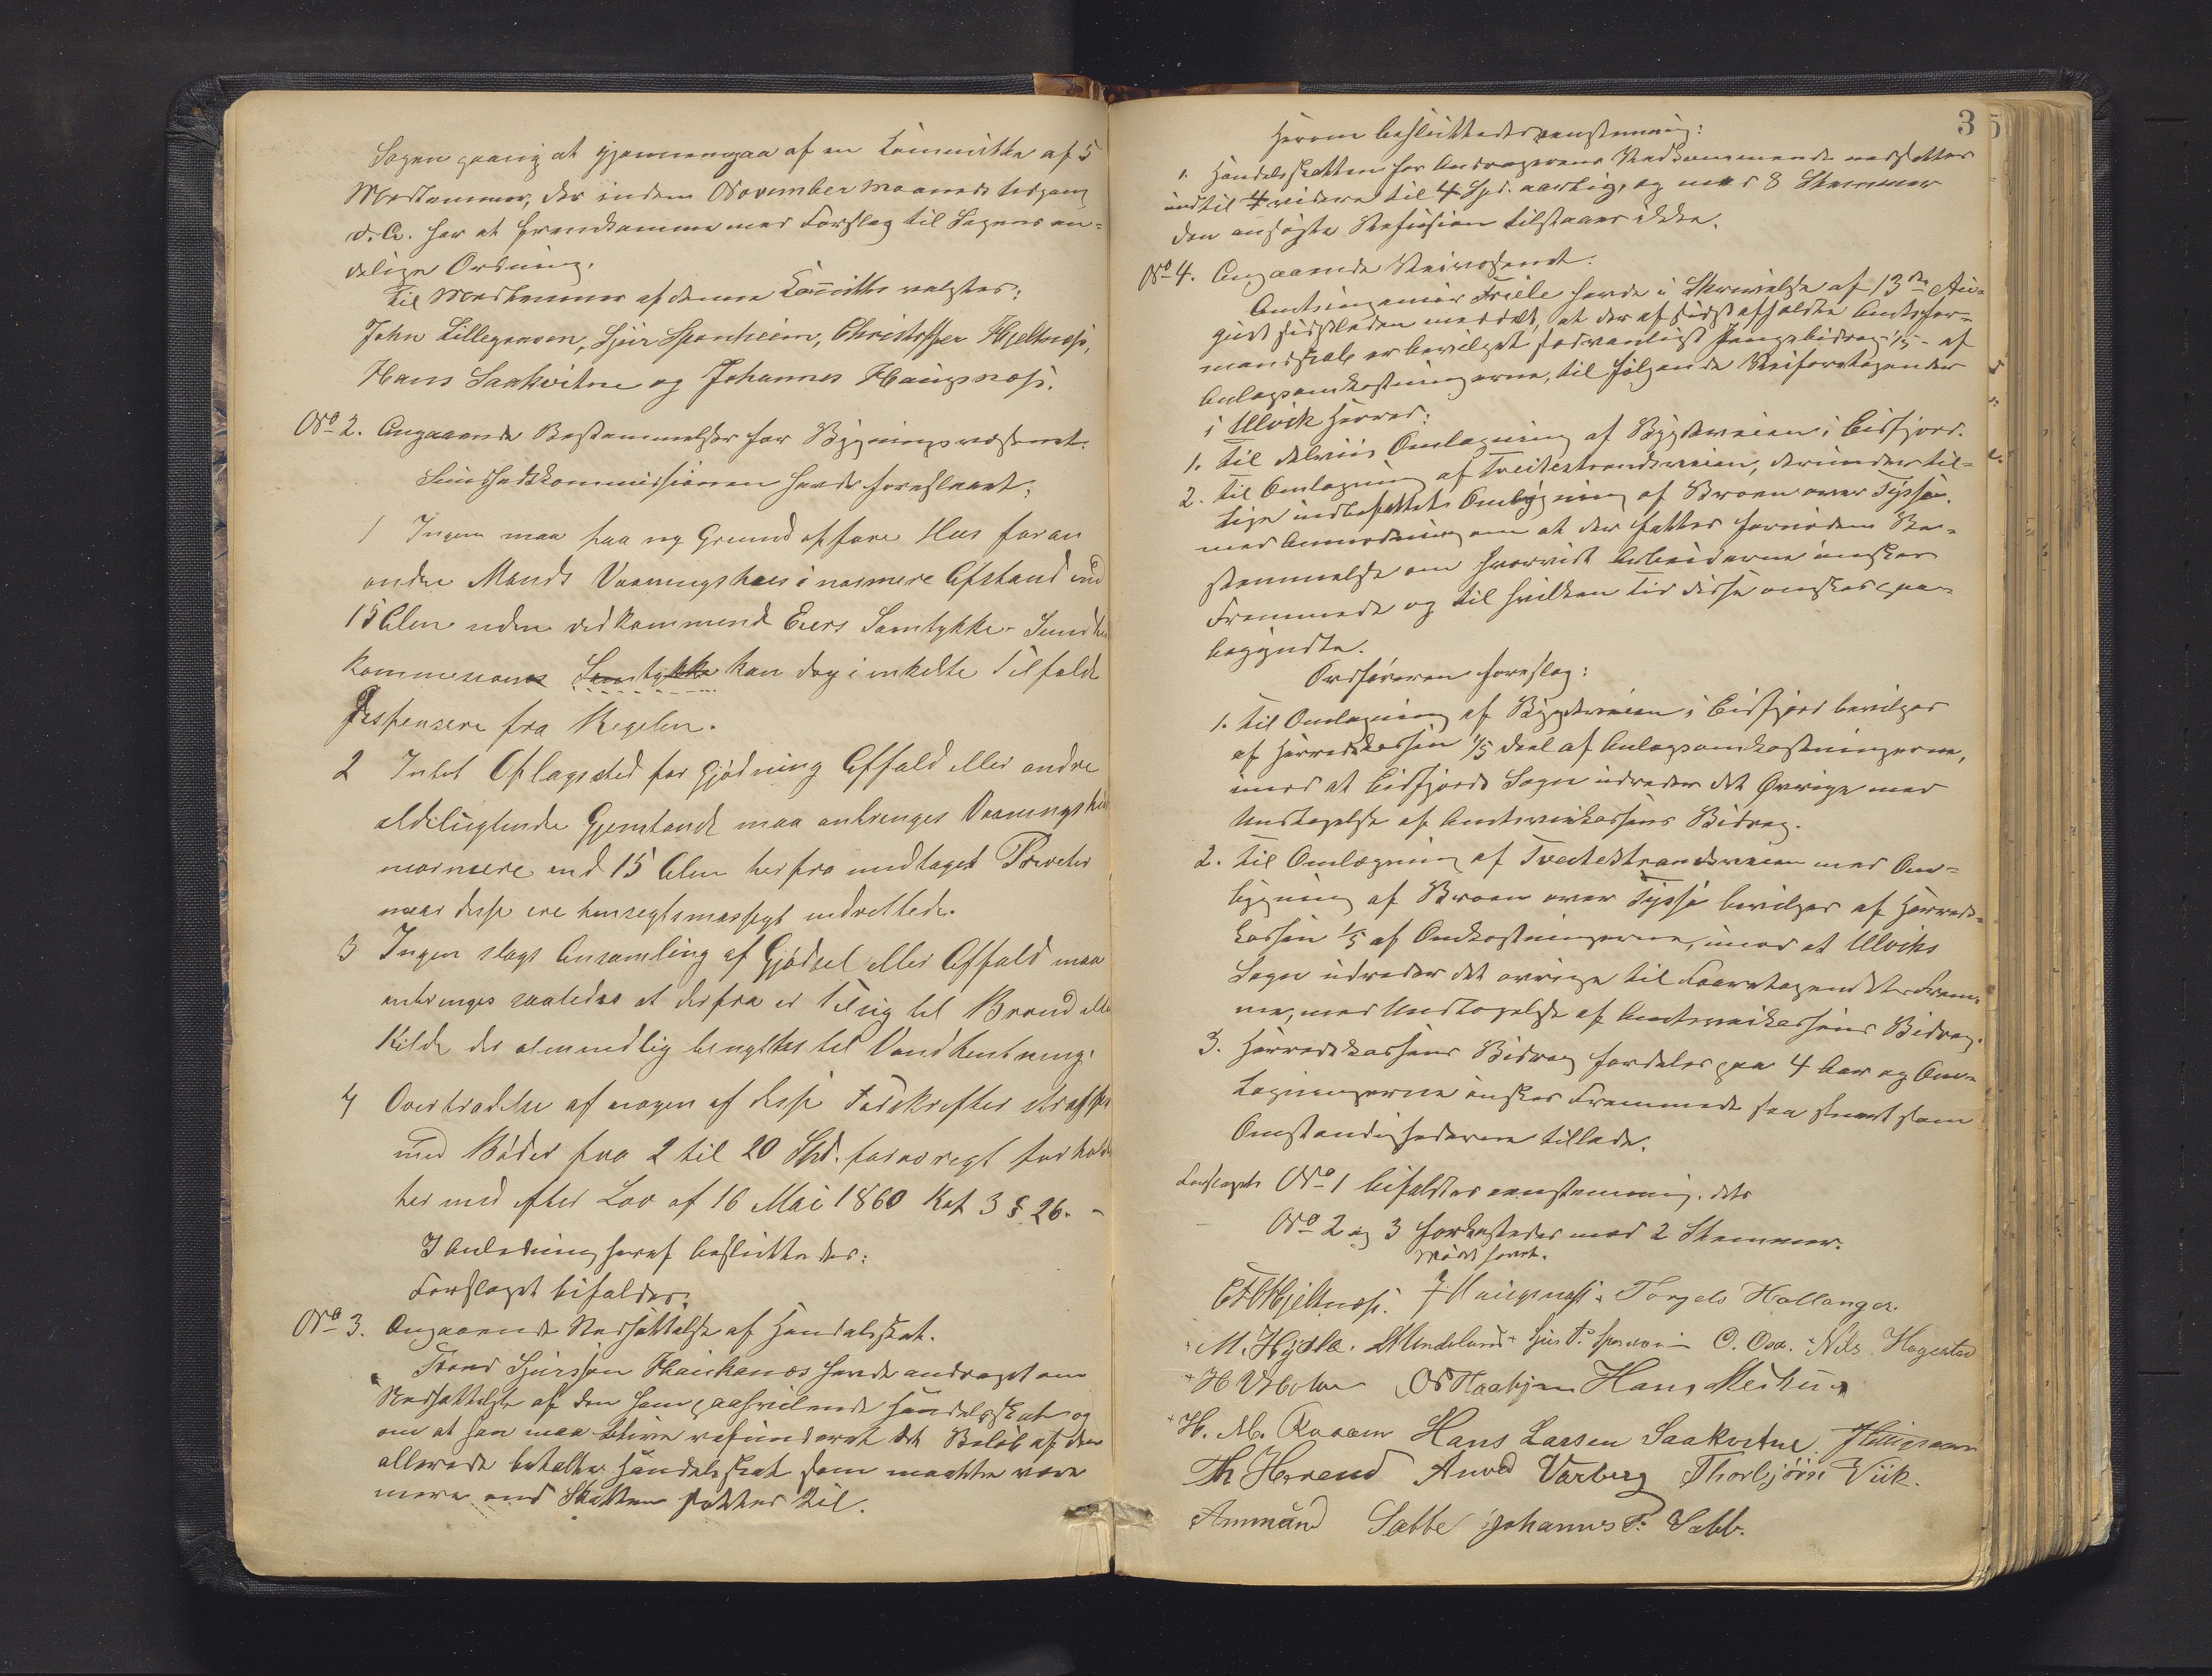 Sagen paany at gjennemgaa af en Committe af 5
Medlemmer, der inden November Maaneds Udgang
d. A. har at fremkomme med Forslag til Sagens en-
delige Ordning.
Til Medlemmer af denne Committe valgtes:
John Lillegraven, Sjur Sponheim, Christoffer Hjeltnæs,
Hans Saakvitne og Johannes Haugsnæs.
No 2. Angaaende Bestemmelser for Bygningsvæsenet.
Sundhedskommissionen havde foreslaaet:
1 Ingen maa paa ny Grund opføre Hus for en
anden Mands Vaaningshus i nærmere Afstand end
15 Alen uden vedkommende Eiers Samtykke. Sundheds
kommissionen Samtykke kan dog i enkelte Tilfælde
dispensere fra Regelen.
2 Intet Oplagssted for Gjødning Affald eller andre
ildelugtende Gjenstande maa anbringes Vaaningshus
nærmere end 15 Alen herfra undtaget Priveter
naar disse ere hensigtsmæssigt indrettede.
3 Ingen slags Ansamling af Gjødsel eller Affald maa
anbringes saaledes at derfra er Tilsig til Brønd eller
Kilde der almindelig benyttes til Vandhentning.
4 Overtrædelse af nogen af disse Forskrifter straffes
med Bøder fra 2 til 20 Spd. forøvrigt forholdes
her med efter Lov af 16 Mai 1860 Kap 3 § 26. -
I Anledning heraf besluttedes:
Forslaget bifaldes.
No 3. Angaaende Nedsættelse af Handelsskat.
Trond Sjursson Haukanæs havde andraget om
Nedsættelse af den ham paahvilende Handelsskat og
om at han maa blive refunderet det Beløb af den
allerede betalte Handelsskat som maatte være
mere end Skatten sættes til.
3
5
Herom besluttedes eenstemmig:
1. Handelsskatten for Andragerens Vedkommende nedsættes
indtil videre til 4 Spd. aarlig, og med 8 Stemmer
den ansøgte Refusion tilstaaes ikke.
No 4. Angaaende Veivæsenet:
Amtsingeniør Friele havde i Skrivelse af 13de Au-
gust sidstleden meddelt, at der af sidst afholdte Amtsfor-
mandskab er bevilget sædvanligt Pengebidrag 1/5 af
Anlægsomkostningerne, til følgende Veiforetagender
i Ulvik Herred:
1. Til delviis Omlægning af Bygdeveien i Eidfjord.
2. til Omlægning af Tveitestrandsveien, derunder til-
lige indbefattet Ombygning af Broen over Tyssøe,
med Anmodning om at der fattes fornøden Be-
stemmelse om hvorvidt Arbeiderne ønskes
Fremmede og til hvilken Tid disse ønskes paa-
begyndte.
Ordføreren foreslog:
1. Til Omlægning af Bygdeveien i Eidfjord bevilges
af Herredskassen 1/5 deel af Anlægsomkostningerne,
imod at Eidfjords Sogn udreder det Øvrige med
Undtagelse af Amtsveikassens Bidrag.
2. Til Omlægning af Tveitestrandsveien med Om-
bygning af Broen over Tyssø bevilges af Herreds-
kassen 1/5 af Omkostningerne, imod at Ulviks
Sogn udreder det øvrige til Foretagendets Frem-
me, med Undtagelse af Amtsveikassens Bidrag.
3. Herredskassens Bidrag fordeles paa 4 Aar og Om-
lægningerne ønskes Fremmede saa snart som
Omstændighederne tillade.
Forslagets No 1 bifaldtes eenstemmig. dets
No 2 og 3 forkastedes med 2 Stemmer.
Mødet hævet.
Hjeltnæs. J Haugsnæs. Torgels Hallanger.
M. Hydle. Sjur P. Sponheim O. Osa. Nils Hagestad
H V Holven Hans Mesthus
H. M. Hans Larsen Saakvitne. J Lillegraven
Th Herreid Anved Varberg Thorbjørn Viik.
Ammund Sæbbe Johannes P. Sæbb.